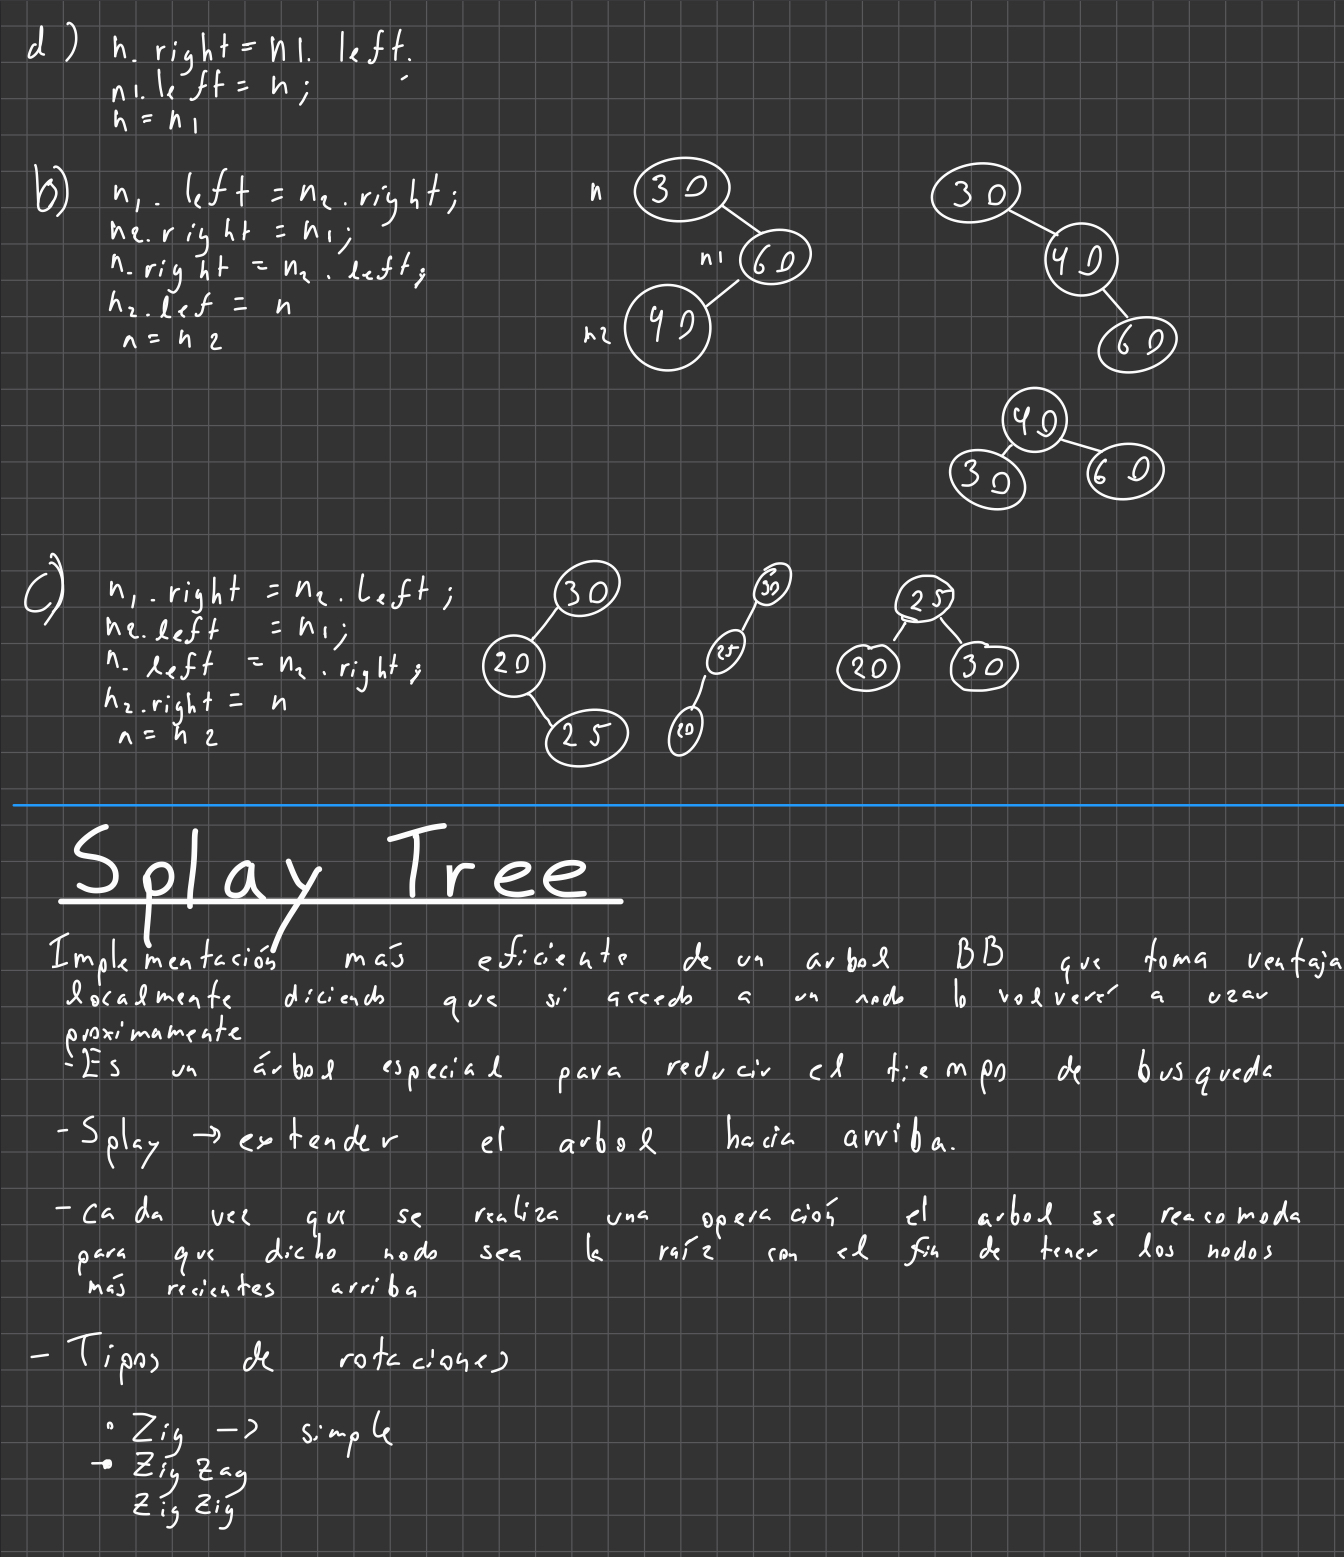 d) n. right = n1. left.
n1. left = n;
n = n1
b) n1. left = n2. right;
n2. right = n1;
n. right = n2. left;
n2. lef = n
n = n2
n 30
n1 60
n2 40
30
40
60
40
30 60
c) n1. right = n2. Left;
n2. left = n1;
n. left = n2. right;
n2. right = n
n = n2
30
20
25
30
25
20
25
20 30
Splay Tree
Implementación más eficiente de un arbol BB que toma ventaja
localmente diciendo que si accedo a un nodo lo volveré a uzar
proximamente
- Es un árbol especial para reducir el tiempo de busqueda
- Splay → extender el arbol hacia arriba.
- cada vez que se realiza una operación el arbol se reacomoda
para que dicho nodo sea la raíz con el fin de tener los nodos
más recientes arriba
- Tipos de rotaciones
• Zig -> simple
• Zig Zag
Zig Zig